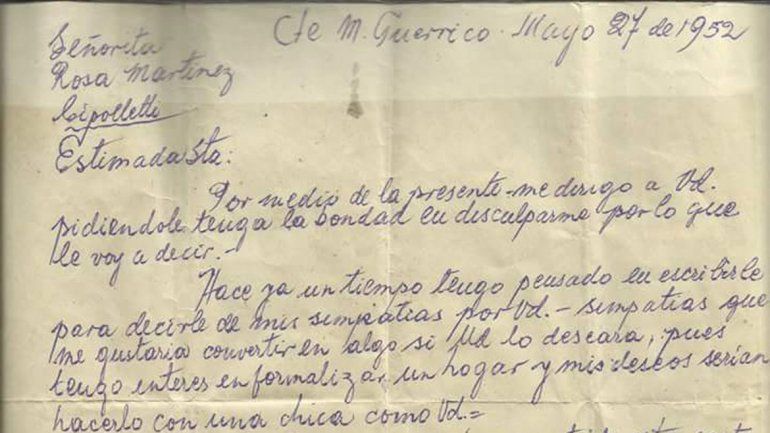 Cte M. Guerrico. Mayo 27 de 1952
Señorita
Rosa Martinez
Cipolletti
Estimada Sta:
Por medio de la presente me dirigo a Vd.
pidiendole tenga la bondad en disculparme por lo que
le voy a decir.-
Hace ya un tiempo tengo pensado en escribirle
para decirle de mis simpatias por Vd. - simpatias que
me gustaria convertir en algo si Ud lo deseara, pues
tengo interes en formalizar un hogar y mis deseos serian
hacerlo con una chica como Vd.=